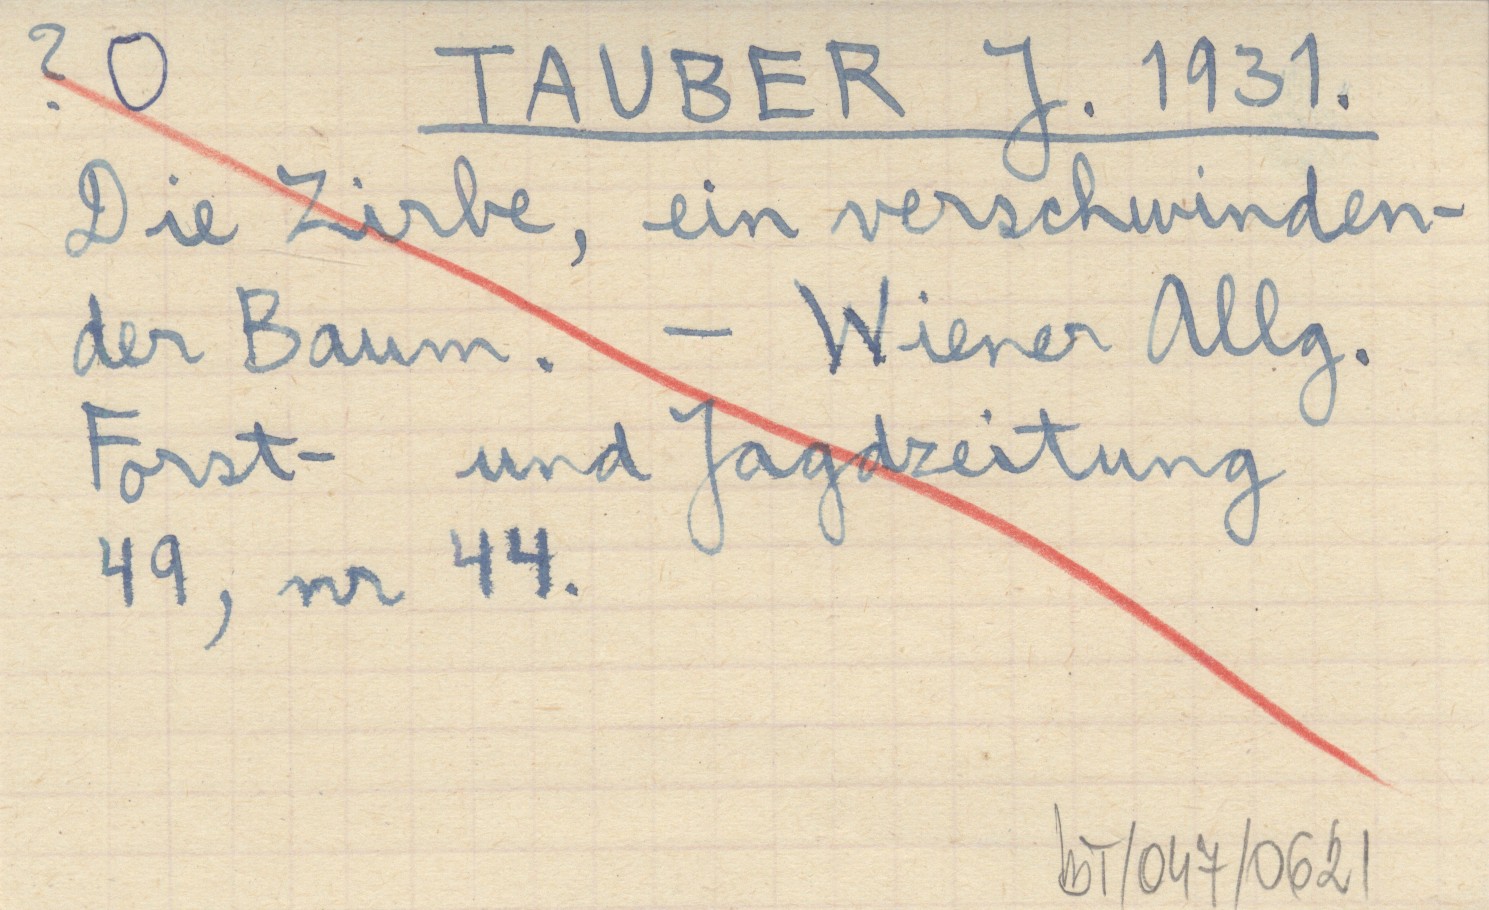 ? O TAUBER J. 1931.
Die Zirbe, ein verschwinden-
der Baum. – Wiener Allg.
Forst- und Jagdzeitung
49, nr 44.
bT/047/0621